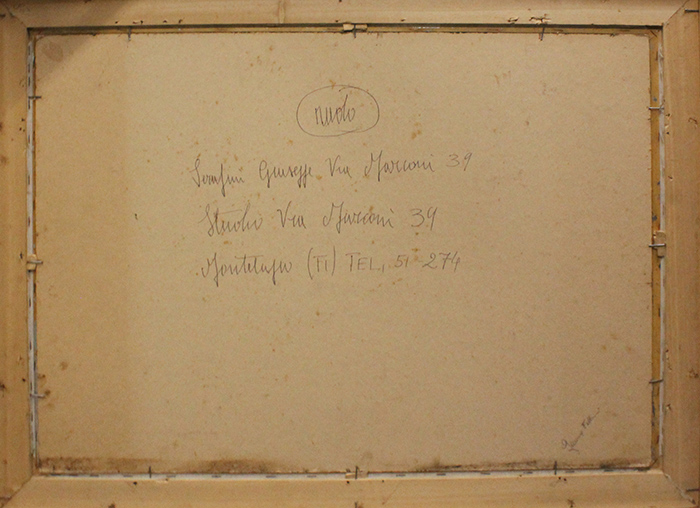 nudo
Serafini Giuseppe Via Marconi 39
Studio Via Marconi 39
Montelupo (FI) TEL, 51 274